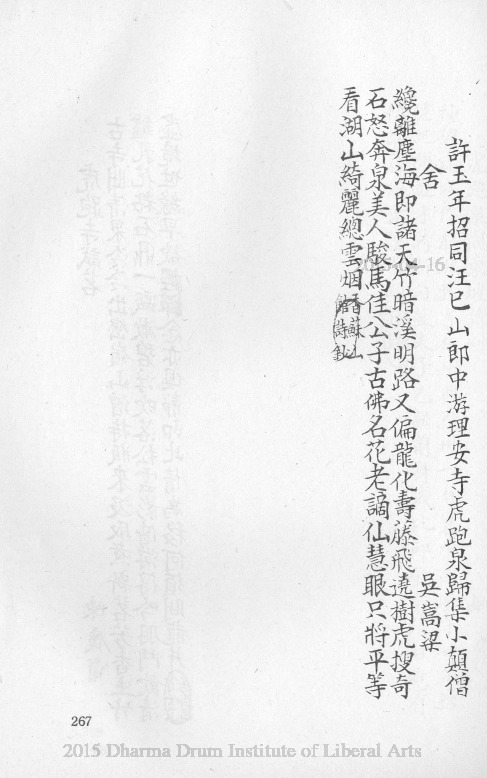 許玉年招同汪巳山郎中游理安寺虎跑泉歸集小顛僧
舍 吳嵩梁
纔離塵海即諸天竹暗溪明路又偏龍化壽藤飛遶樹虎搜奇
石怒奔泉美人駿馬佳公子古佛名花老謫仙慧眼只將平等
看湖山綺麗總雲烟
香蘇山
館詩鈔
267
2015 Dharma Drum Institute of Liberal Arts